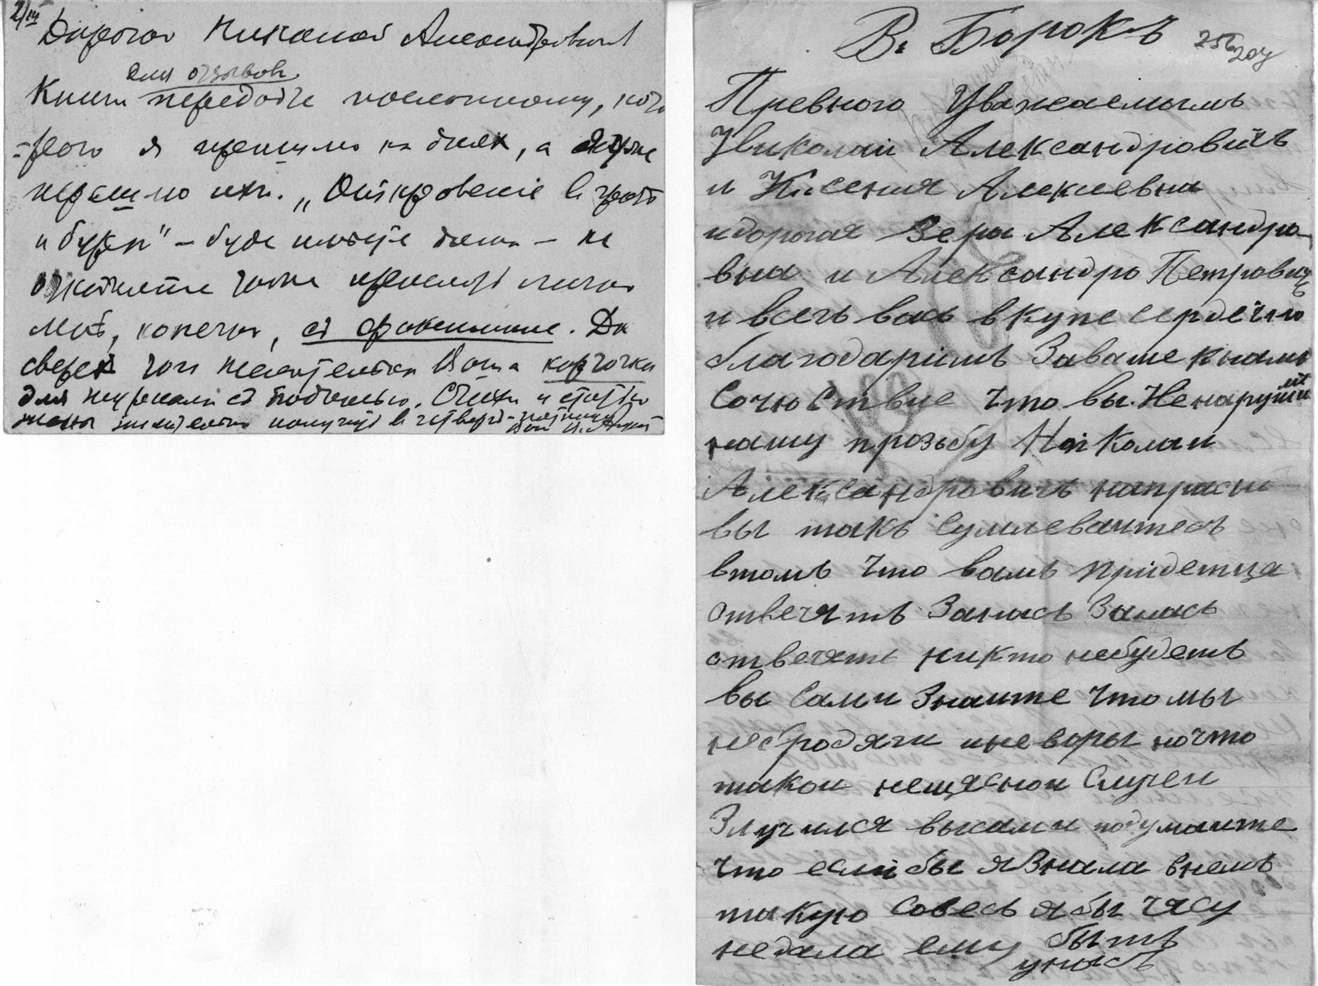 2/III
Дорогой Николай Александрович
для отзывов
Книги передайте посланному, кото
-рого я пришлю на днях, а
„Откровение в грозе
и буре" – буде имеете два – не
откажите
конечно, с факсимиле. До
сверх того желательна Ваша карточка
для журнала с подписью. Счёт и статью
получу в четверг-пятницу
В. Борокъ 256
204
Превного Уважаемымъ
Николай Александровичъ
и Ксения Алексевна
и дорогая Вера Александро
вна и Александро Петрович
ъ
и всеъ васъ вкупе сердечно
благодаримъ Заваше кнамъ
Сочюствие Что вы Ненарушили
нашу прозьбу Николаи
Александровичъ напрасно
вы такъ Сумлеваитесъ
втомъ Что вамъ придетца
отвечятъ Занасъ Занасъ
отвечять никто небудетъ
вы Сами Знаите Что мы
небродяги иневоры ночто
такои нещясной Случеи
Злучился высами подумаите
Что если бы я Внала внемъ
такую Совесь ябы Чясу
недала ему быть
унасъ